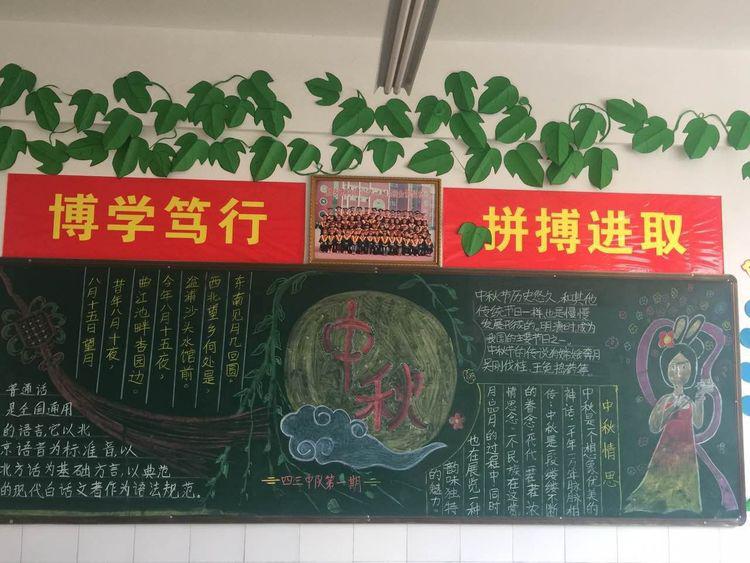 博学笃行
拼搏进取
八月十五日望月
昔年八月十夜，
曲江池畔杏园边。
今年八月十五夜，
湓浦沙头水馆前。
西北望乡何处是，
东南见月几回圆。
中秋
普通话
是全国通用
的语言，它以北
京语音为标准音，以
北方话为基础方言，以典范
的现代白话文著作为语法规范。
四三中队第一期
中秋节历史悠久，和其他
传统节日一样，也是慢慢
发展形成的，明清时，成为
我国的主要节日之一。
中秋节的传说有嫦娥奔月
吴刚伐桂、玉兔捣药等。
中秋情思
中秋是一个相爱优美的
神话，千年万年脉脉相
传；中秋是一段绵绵不断
的眷念，花代一茬茬浓
情思念；一个民族在这赏
月品月的过程中，同时
也在展览一种
韵味独特
的魅力。